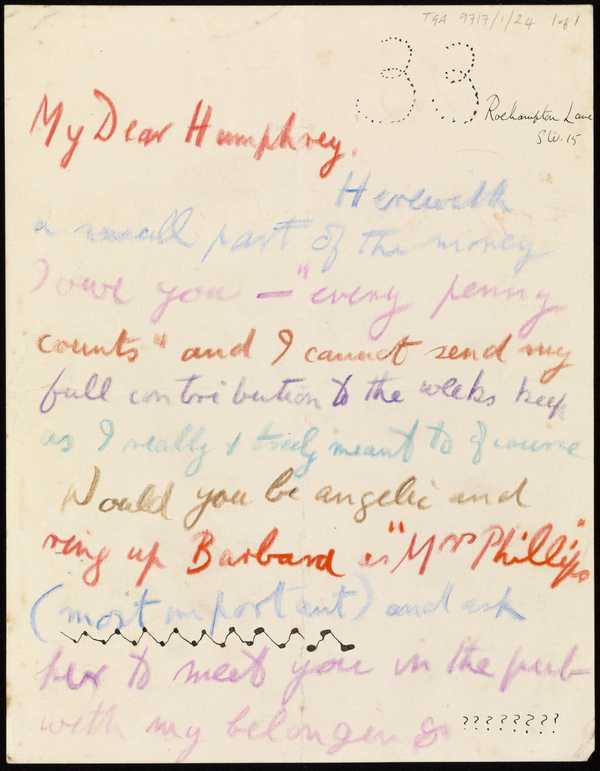 TGA 9717/1/24 1 of 1
33
Roehampton Lane
S.W.15
My Dear Humphrey.
Herewith
a small part of the money
I owe you — "every penny
counts" and I cannot send my
full contribution to the weeks keep
as I really & truly meant to of course
Would you be angelic and
ring up Barbara as "Mrs Phillips"
(most important) and ask
her to meet you in the pub
with my belongings ????????